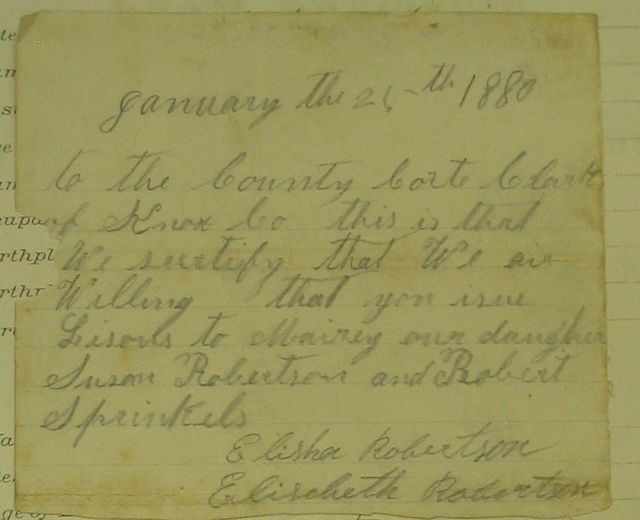 January the 25-th 1880
to the County Corte Clark
of Knox Co this is that
We sertify that We are
Willing that you isue
Lisons to Mairey our daugher
Suson Robertson and Robert
Sprinkels
Elisha Robertson
Elisebeth Robertson